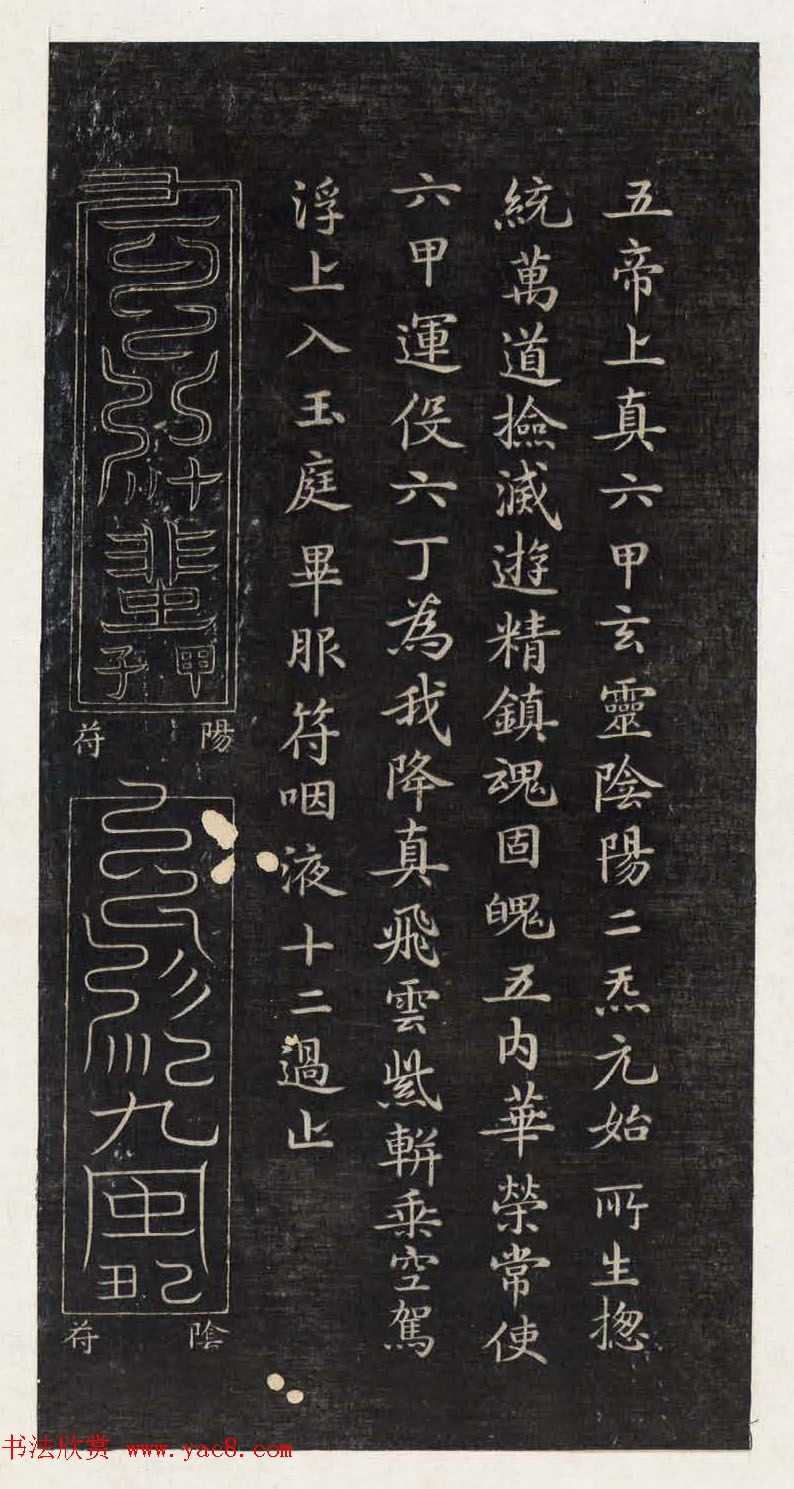 五帝上真六甲玄靈陰陽二炁元始所生揔
統萬道撿滅遊精鎮魂固魄五内華榮常使
六甲運役六丁為我降真飛雲紫軿乘空駕
浮上入玉庭畢服符咽液十二過止
甲子
陽符
九
己丑
陰符
书法欣赏 www.yac8.com